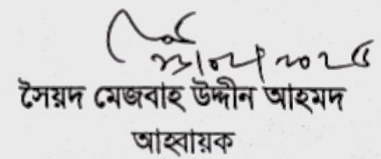 সৈয়দ মেজবাহ উদ্দীন আহমদ
আহবায়ক